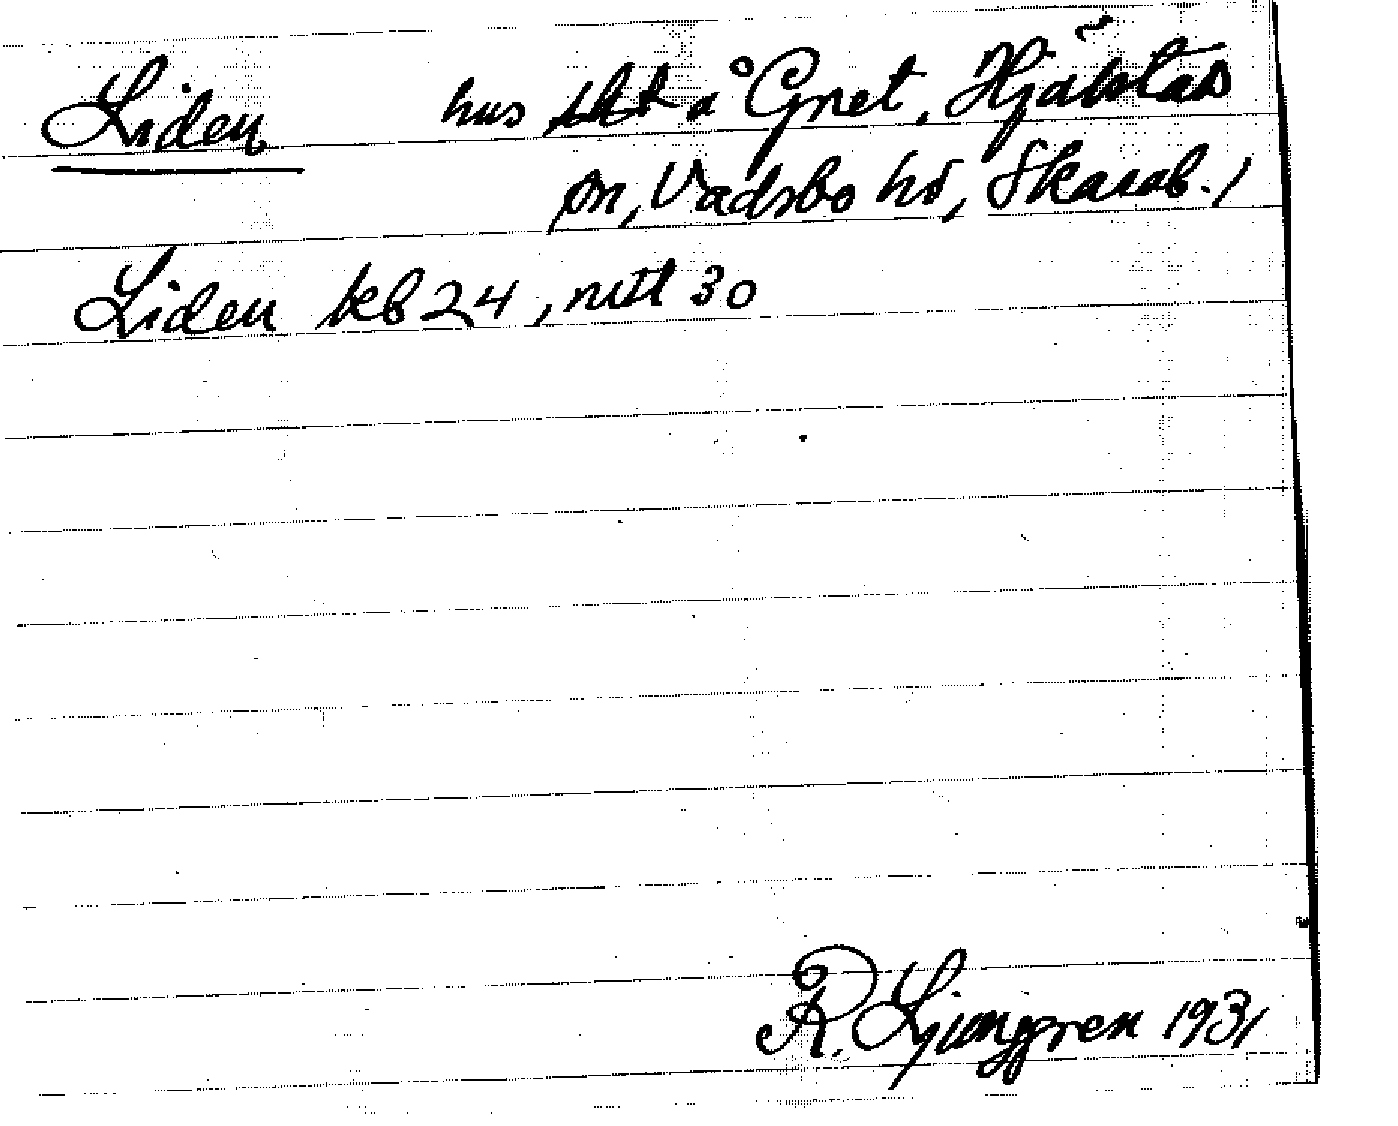 Liden hus å Gnet, Hjälstad
sn, Vadsbo hd, Skarab. l
Liden kb 24, mtl 30
R. Ljunggren 1931